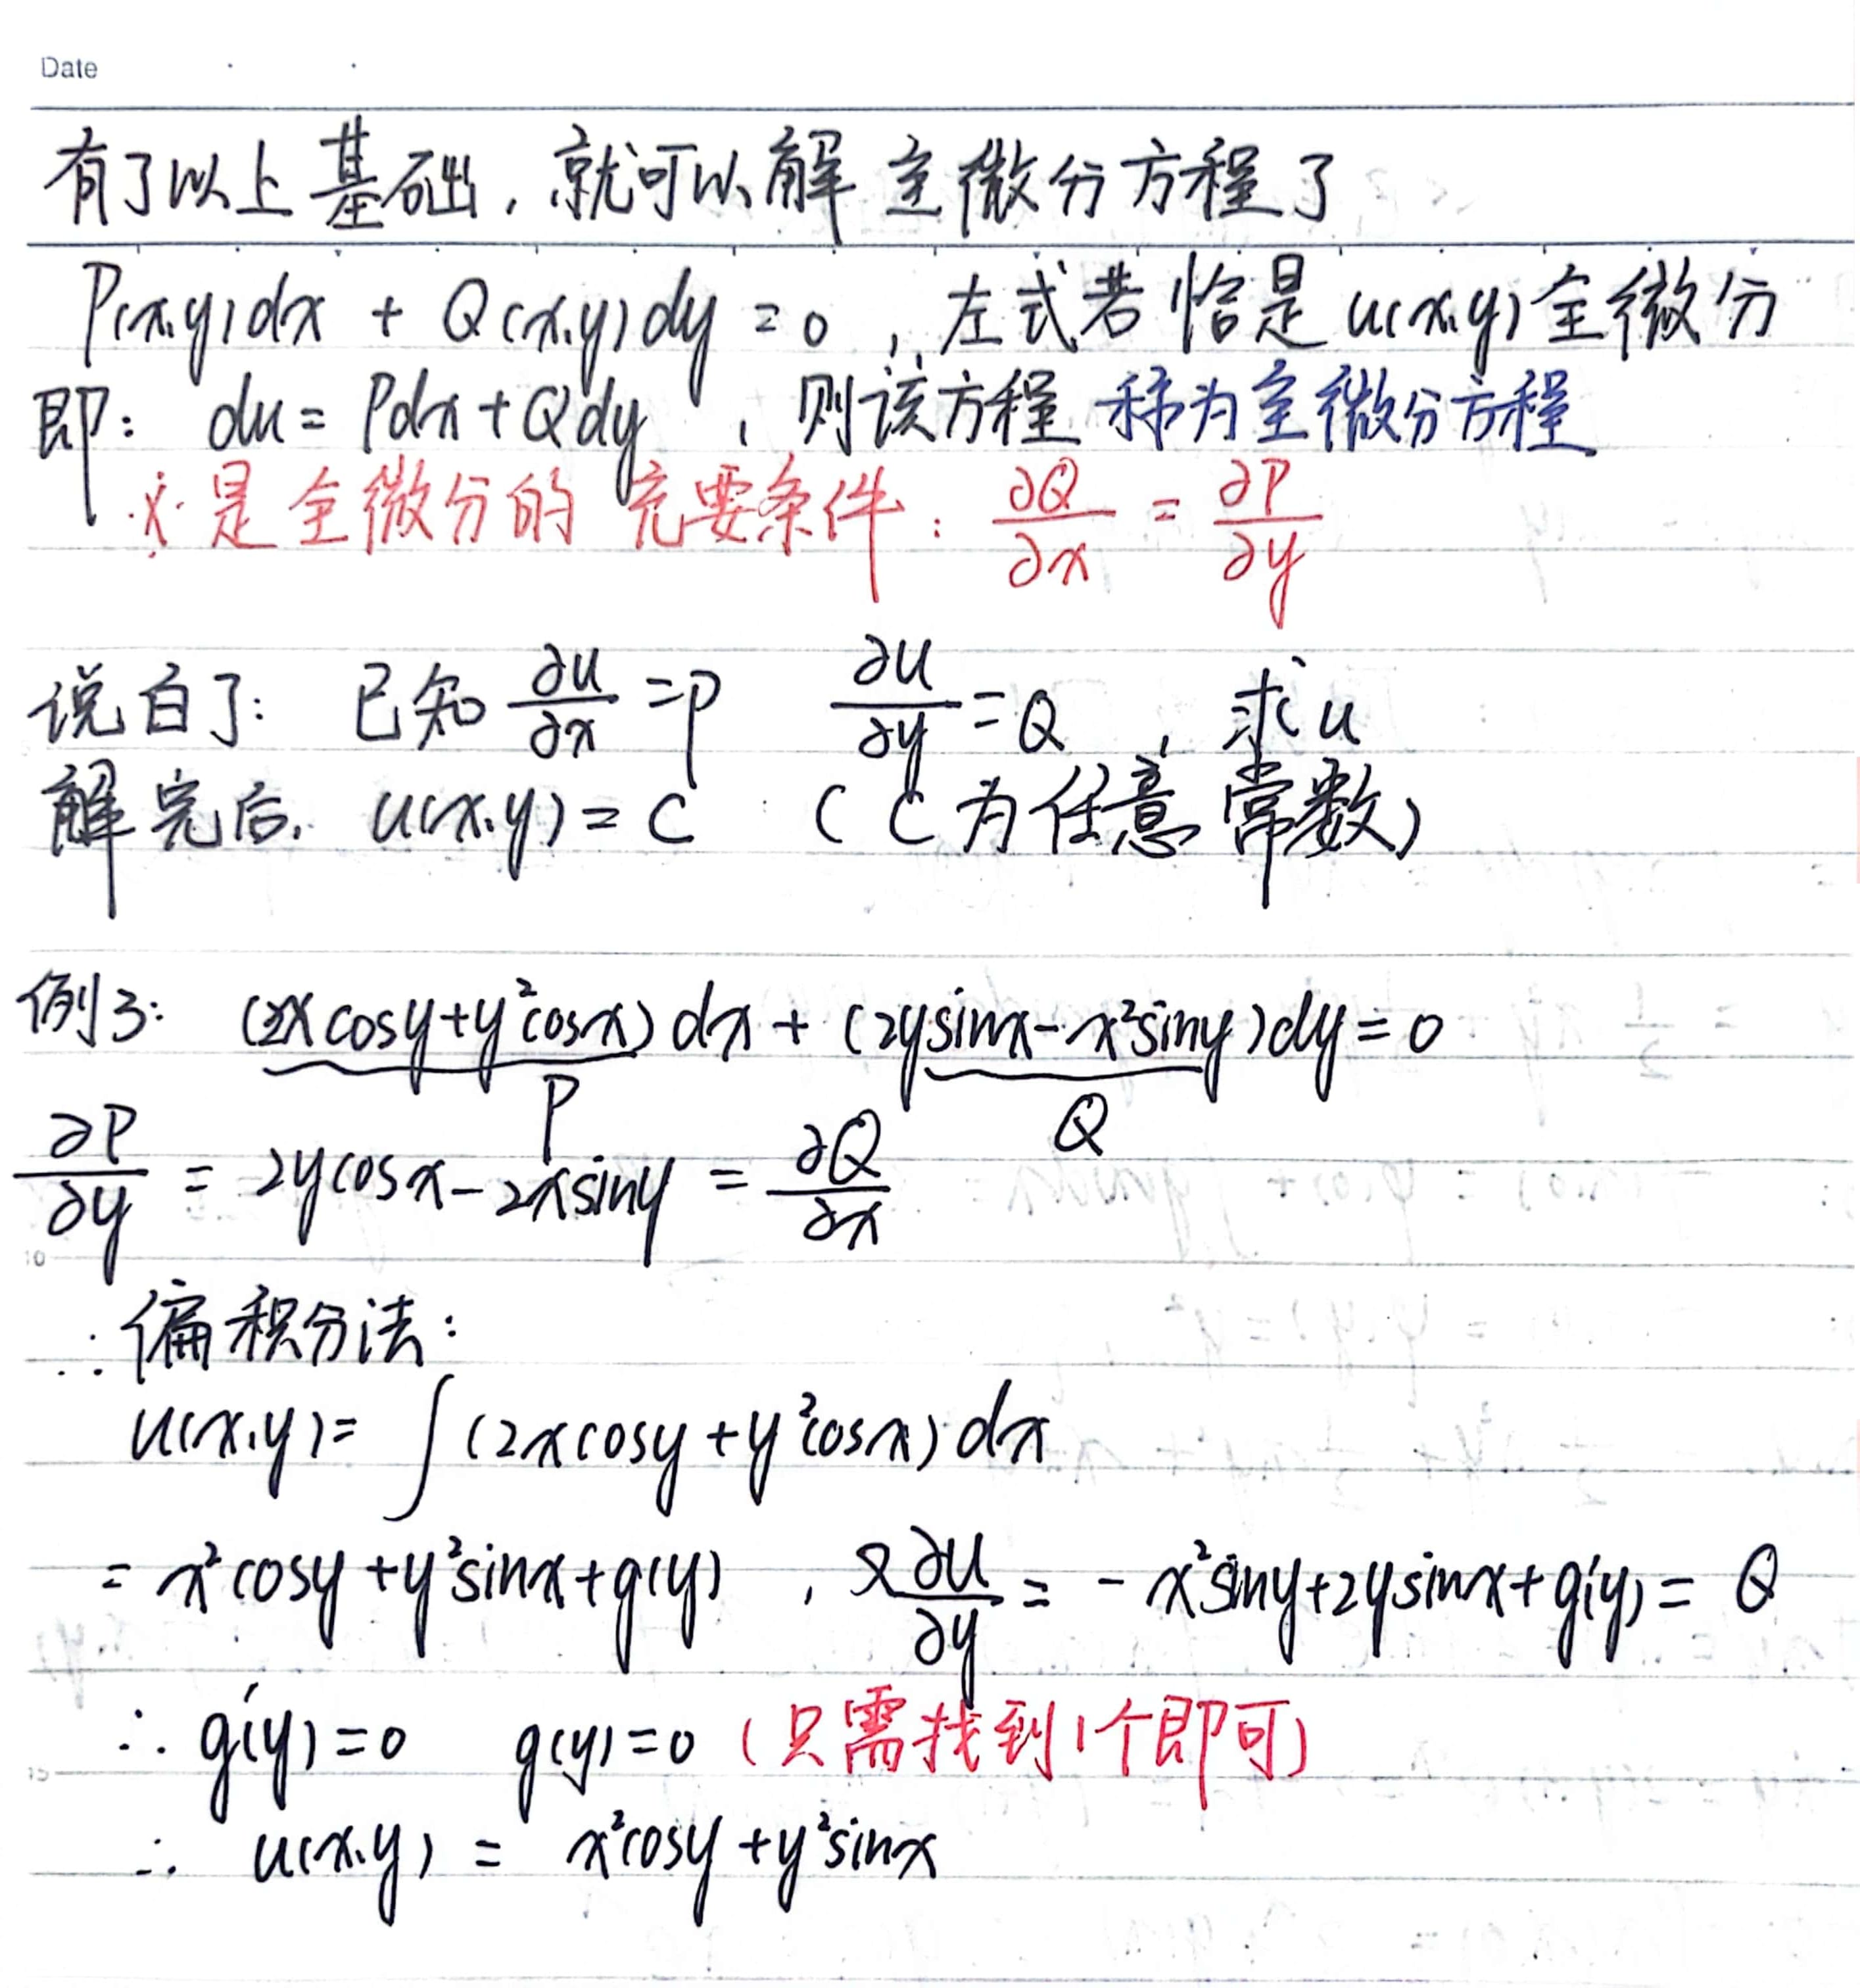 Date
有了以上基础，就可以解全微分方程了
P(x,y)dx + Q(x,y)dy = 0，左式若恰是u(x,y)全微分
即： du = Pdx + Qdy ，则该方程称为全微分方程
※是全微分的充要条件：∂Q/∂x = ∂P/∂y
说白了： 已知 ∂u/∂x = P ∂u/∂y = Q ，求u
解完后，u(x,y) = C （C为任意常数）
例3： (2xcosy+y²cosx)dx + (2ysinx-x²siny)dy = 0
P Q
∂P/∂y = 2ycosx - 2xsiny = ∂Q/∂x
10
∴偏积分法：
u(x,y) = ∫(2xcosy + y²cosx)dx
= x²cosy + y²sinx + g(y) ，又∂u/∂y = -x²siny + 2ysinx + g'(y) = Q
∴ g'(y) = 0 g(y) = 0（只需找到1个即可）
15
∴ u(x,y) = x²cosy + y²sinx